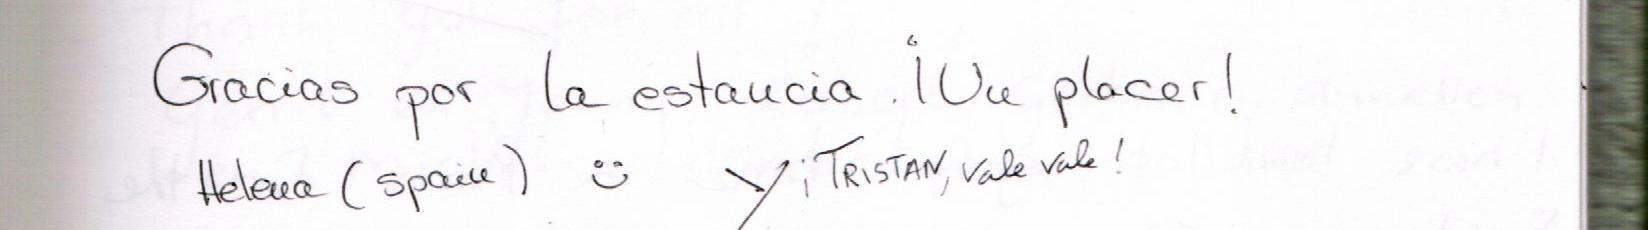 Gracias por la estancia. ¡Un placer!
Helena (Spain) :) Y ¡TRISTAN, vale vale!